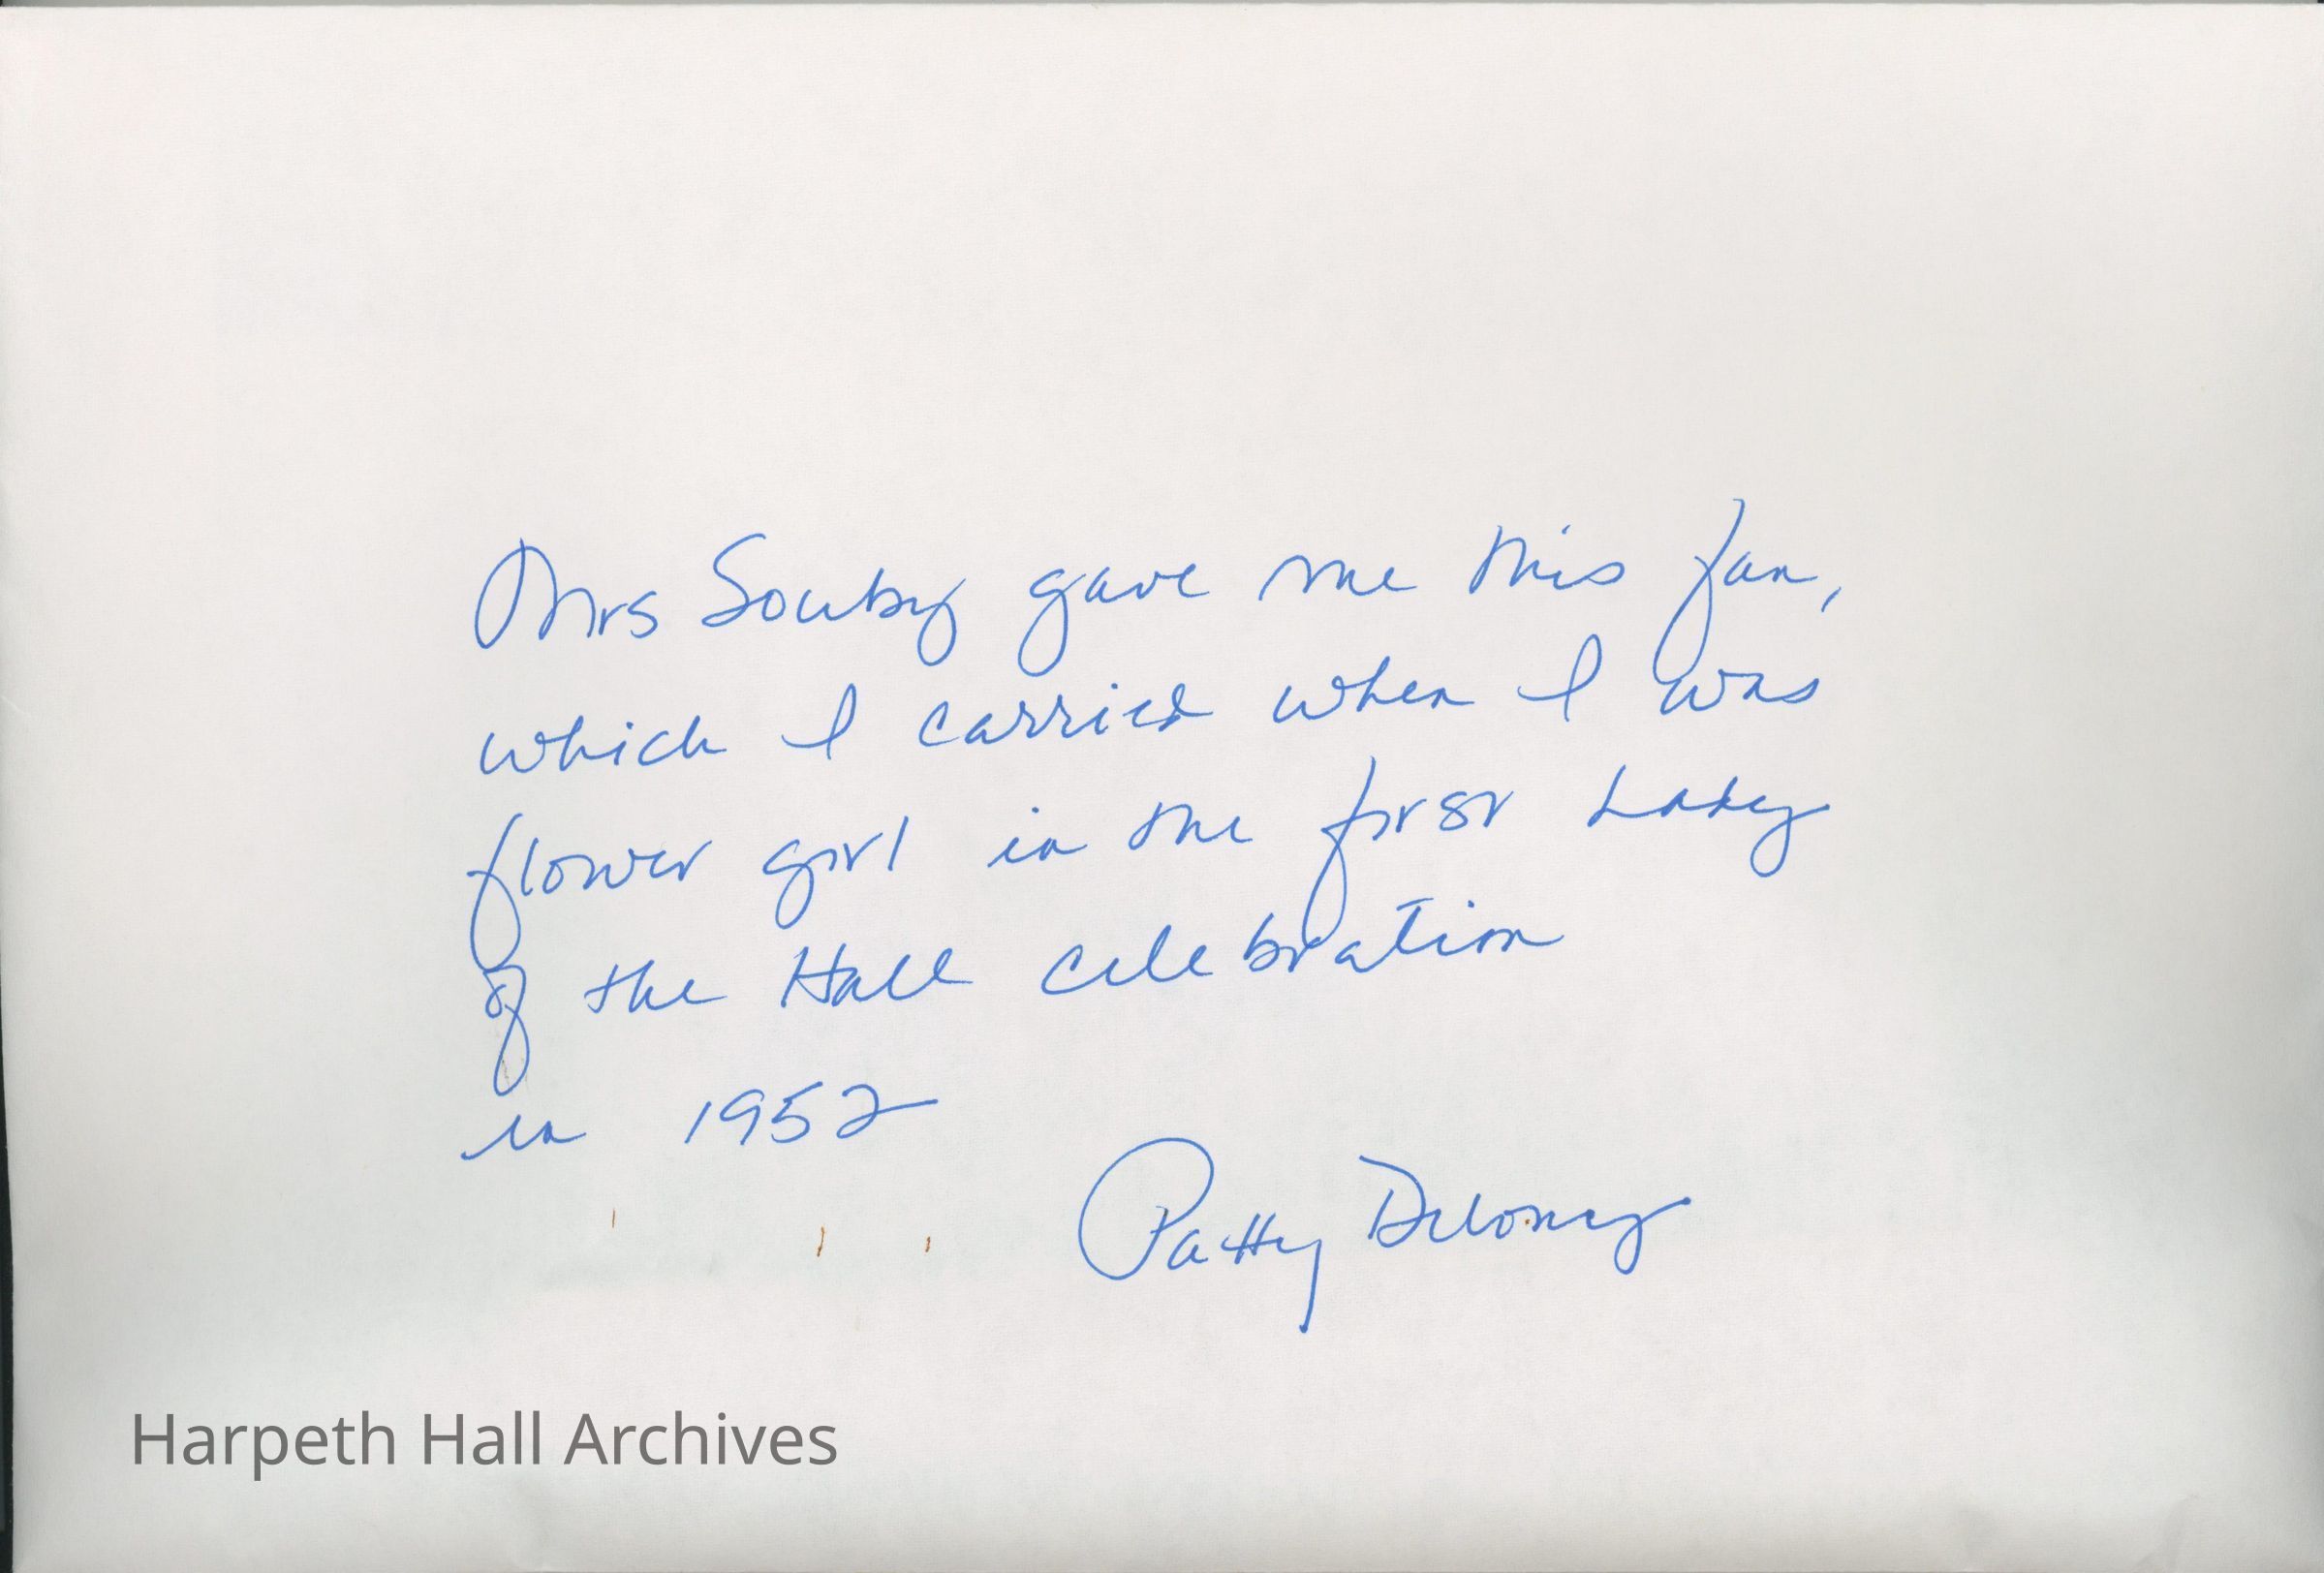 Mrs Souby gave me this fan,
which I carried when I was
flower girl in the first Lady
of the Hall celebration
in 1952
Patty Deloney
Harpeth Hall Archives